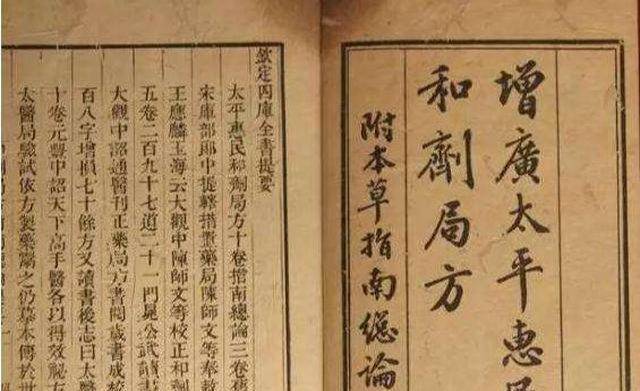 增廣太平惠民
和劑局方
附本草指南總論
欽定四庫全書提要
太平惠民和劑局方十卷指南總論三卷舊
宋庫部郎中提轄措置藥局陳師文等奉敕
王應麟玉海云大觀中陳師文等校正和劑
五卷二百九十七道二十一門晁公武讀書
大觀中詔通醫刊正藥局方書閱歲書成校
百八字增損七十餘方又讀書後志曰太醫
十卷元豐中詔天下高手醫各以得效秘方
太醫局驗試依方製藥鬻之仍摹本傳於世